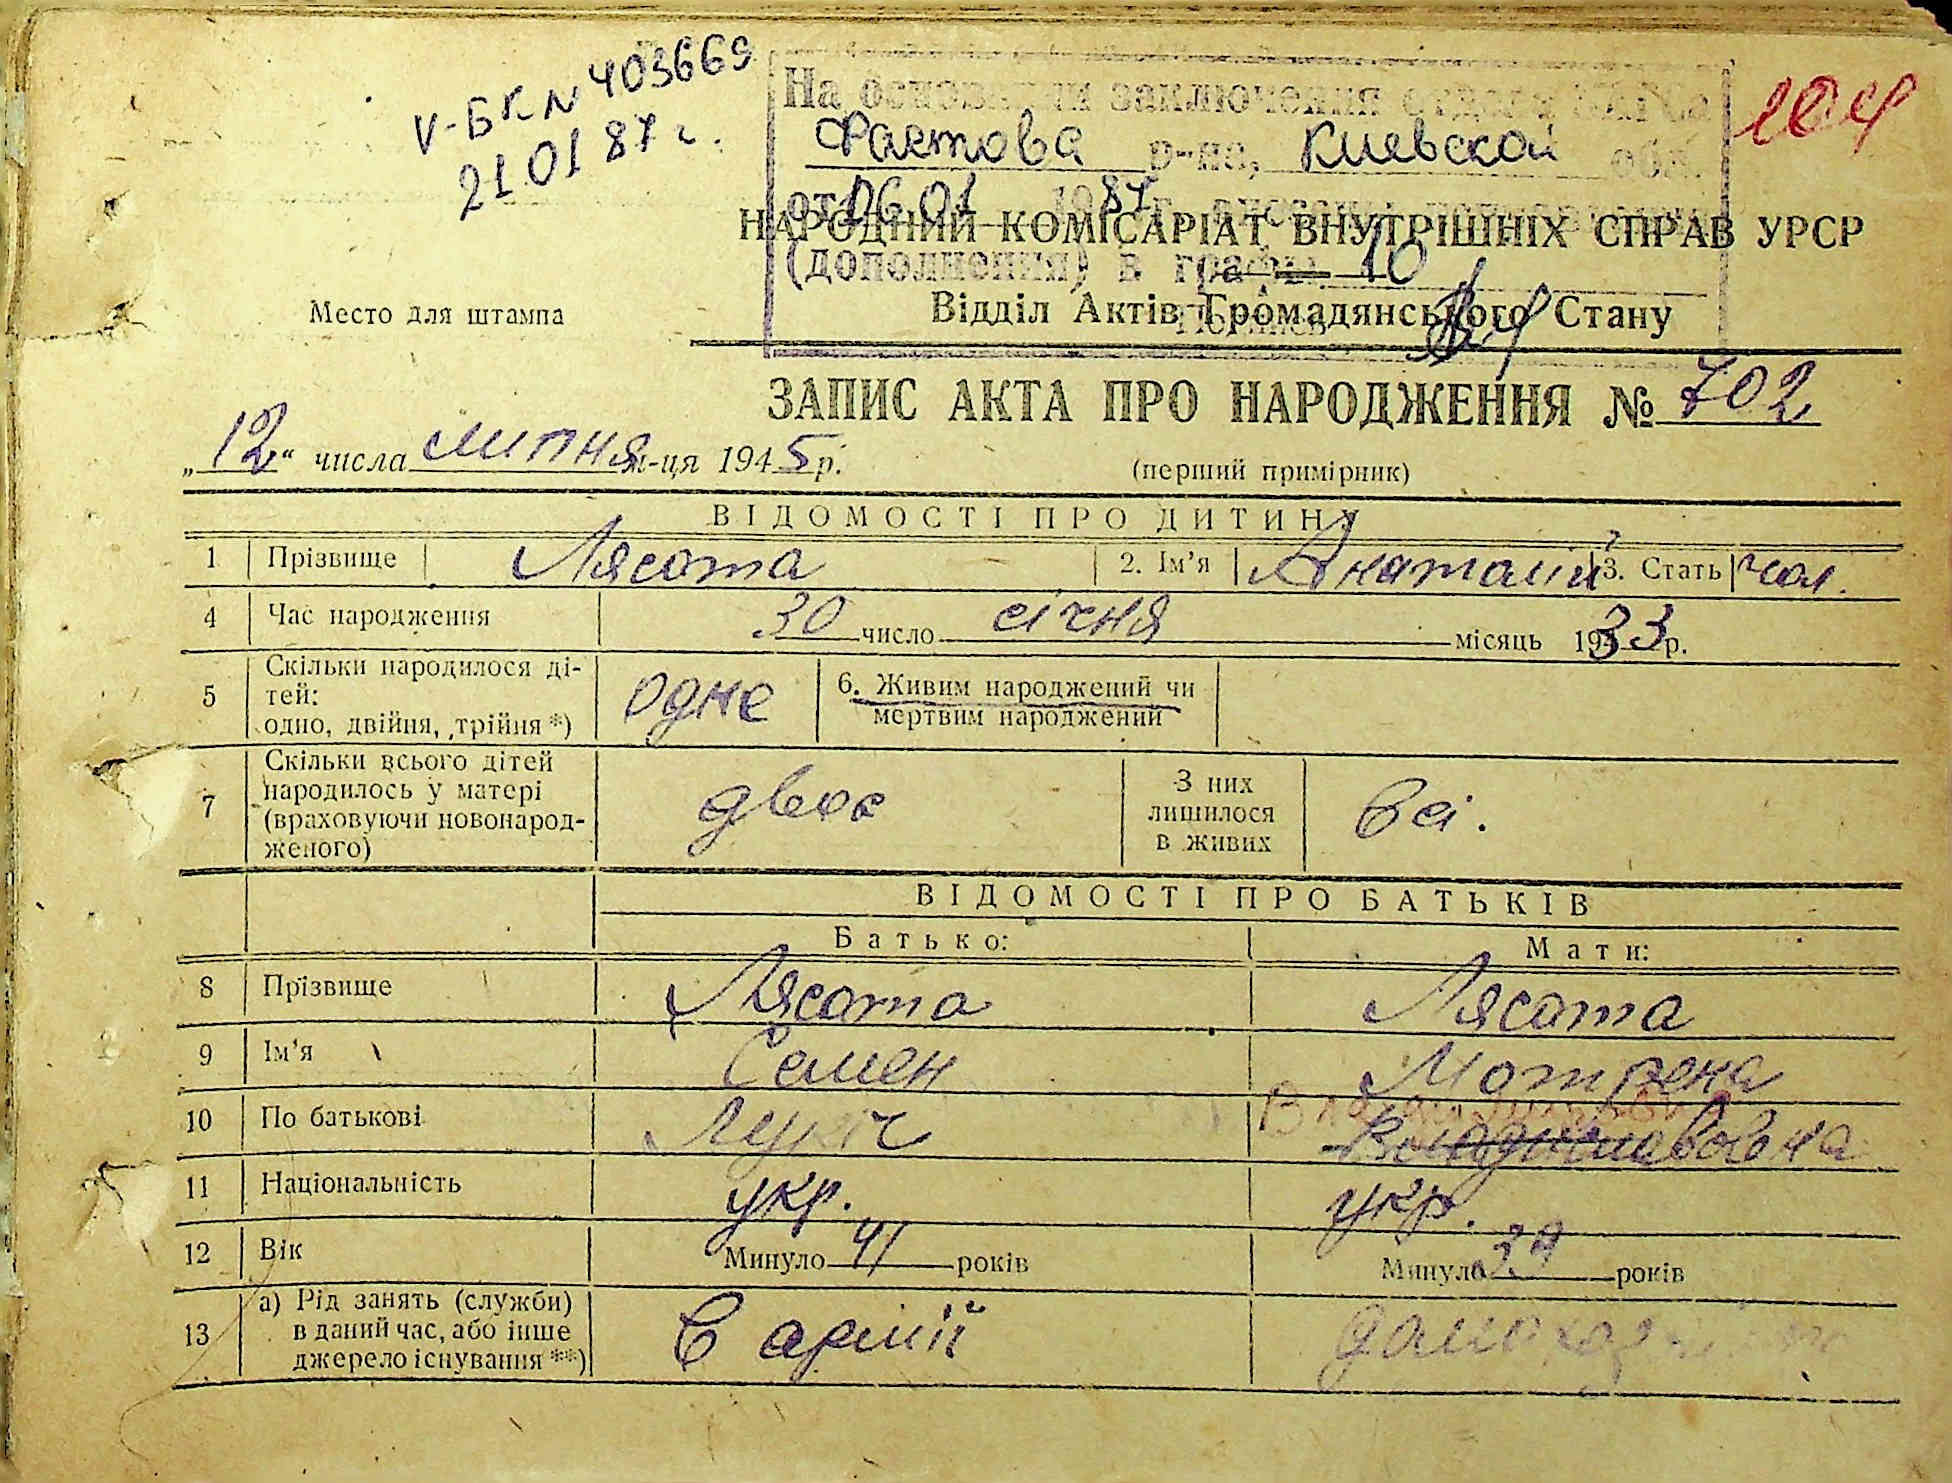 V-БК N 403669
21 01 87 г.
На основании заключения отдела ЗАГСа
Фастова р-на, Киевской обл.
от 06.01 1987 г.
(дополнения) в графы 10
104
НАРОДНИЙ КОМІСАРІАТ ВНУТРІШНІХ СПРАВ УРСР
Место для штампа
Відділ Актів Громадянського Стану
ЗАПИС АКТА ПРО НАРОДЖЕННЯ № 702
„12“ числа липня м-ця 1945 р.
(перший примірник)
ВІДОМОСТІ ПРО ДИТИНУ
1 Прізвище Лясота 2. Ім'я Анатолій 3. Стать чол.
4 Час народження 30 число січня місяць 1933 р.
5 Скільки народилося ді-
тей:
одно, двійня, трійня *) одне
6. Живим народжений чи
мертвим народжений
7 Скільки всього дітей
народилось у матері
(враховуючи новонарод-
женого) двоє
З них
лишилося
в живих всі.
ВІДОМОСТІ ПРО БАТЬКІВ
Батько: Мати:
8 Прізвище Лясота Лясота
9 Ім'я Семен Мотрена
10 По батькові Лукіч Владиславовна
11 Національність укр. укр.
12 Вік Минуло 41 років Минуло 39 років
13 а) Рід занять (служби)
в даний час, або інше
джерело існування **) В армії